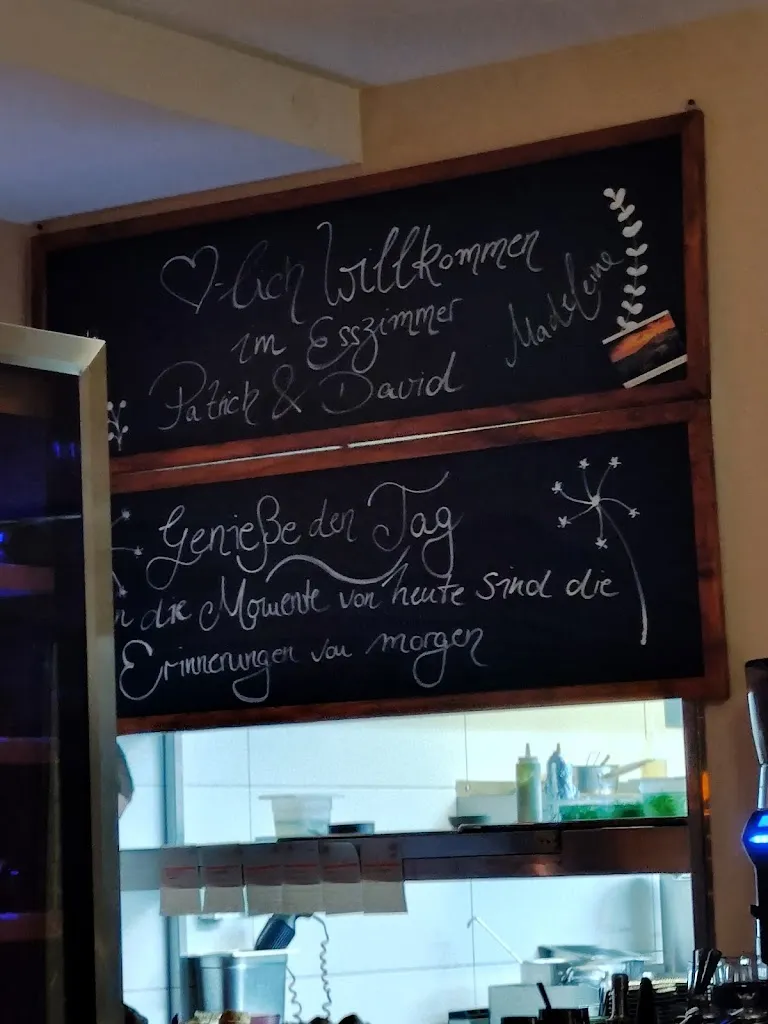 ♡-lich Willkommen
im Esszimmer
Patrick & David
Madeleine
Genieße den Tag
die Momente von heute sind die
Erinnerungen von morgen